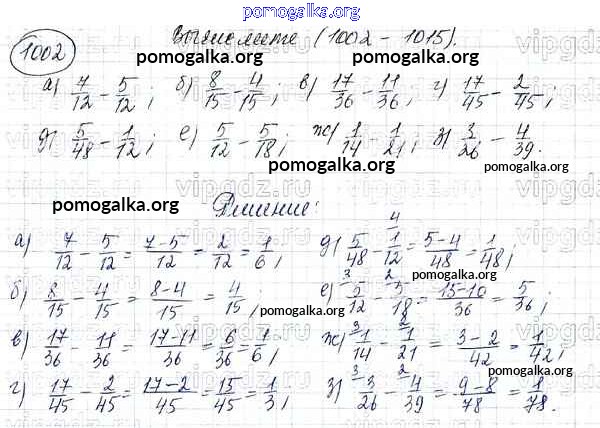 pomogalka.org
1002
Выполните (1002 - 1015).
pomogalka.org pomogalka.org
а) 7/12 - 5/12; б) 8/15 - 4/15; в) 17/36 - 11/36; г) 17/45 - 2/45;
д) 5/48 - 1/12; е) 5/12 - 5/18; ж) 1/14 - 1/21; з) 3/26 - 4/39.
pomogalka.org pomogalka.org
vipgdz.ru
pomogalka.org Решение:
а) 7/12 - 5/12 = (7-5)/12 = 2/12 = 1/6; д) 5/48 - 1/12 (4) = (5-4)/48 = 1/48;
pomogalka.org
б) 8/15 - 4/15 = (8-4)/15 = 4/15; е) (3) 5/12 - (2) 5/18 = (15-10)/36 = 5/36;
pomogalka.org
в) 17/36 - 11/36 = (17-11)/36 = 6/36 = 1/6; ж) (3) 1/14 - (2) 1/21 = (3-2)/42 = 1/42;
pomogalka.org
г) 17/45 - 2/45 = (17-2)/45 = 15/45 = 1/3; з) (3) 3/26 - (2) 4/39 = (9-8)/78 = 1/78.